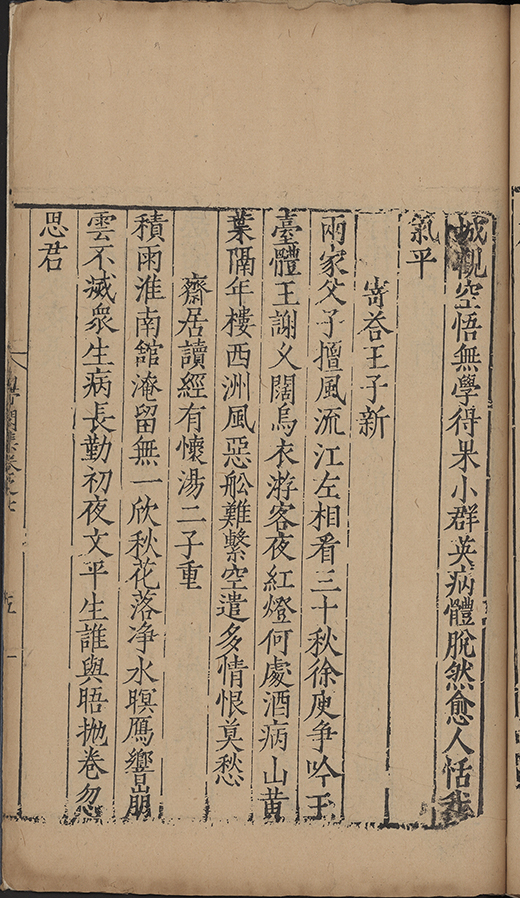 城觀空悟無學得果小群英病體脫然愈人恬我
氣平
寄荅王子新
兩家父子擅風流江左相看三十秋徐庾争吟玉
臺體王謝乂闊烏衣游客夜紅燈何處酒病山黄
葉隔年樓西洲風惡舩難繫空遣多情恨莫愁
齋居讀經有懷湯二子重
積雨淮南舘淹留無一欣秋花落净水暝鴈響崩
雲不滅衆生病長勤初夜文平生誰與晤抛卷忽
思君